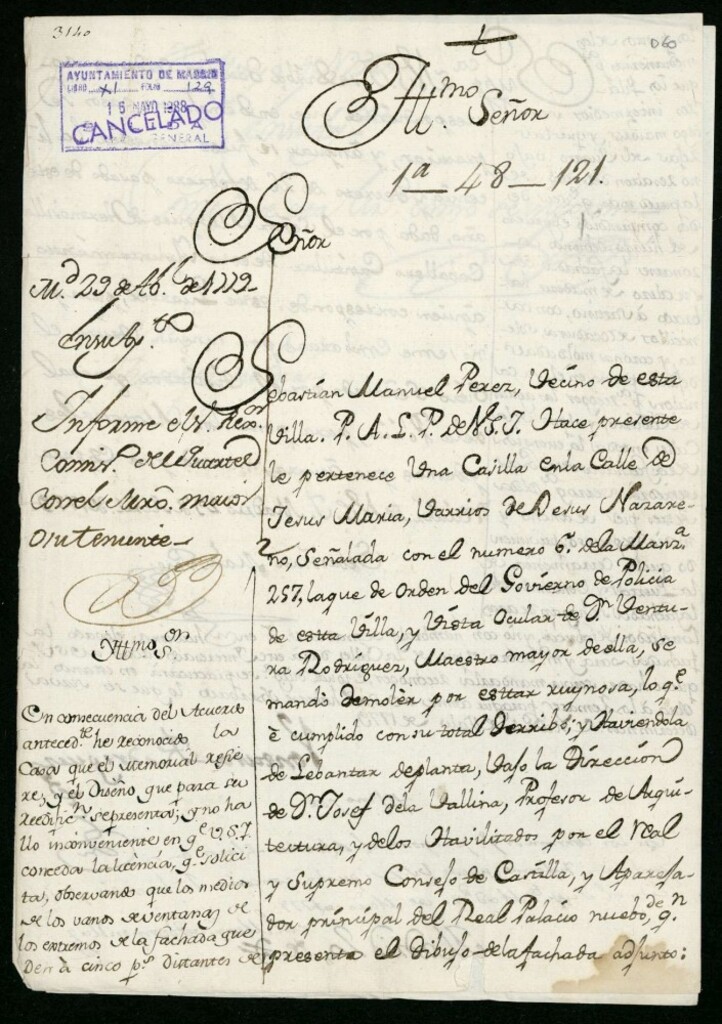 3140
060
AYUNTAMIENTO DE MADRID
LIBRO XI FOLIO 129
16 MAYO 1988
CANCELADO
GENERAL
Yltt.mo Señor
1a — 48 — 121.
Señor
M.d 29 de Ab.l de
En su Ay.to
Informe el S.
Comis.o del Quartel
con el Mro. maior
o su teniente
Yltt.mo S.or
En consecuencia del Acuerdo
anteced.te he reconocido la
Casa que el memorial refie-
re, y el Diseño que para su
reedific.n representa; y no ha
llo inconveniente en q.e V.S.Y.
conceda la licencia, q.e solici
ta, observando que los medios
de los vanos de ventanas de
los extremos de la fachada que
den à cinco p.s distantes de
Sebastian Manuel Perez, Vecino de esta
Villa. P. A. L. P. de V.S.I. Hace presente
le pertenece Una Casilla en la Calle de
Jesus Maria, Varrios de Jesus Nazare-
no, Señalada con el numero 6. de la Manz.a
257, la que de Orden del Govierno de Policia
de estta Villa, y Vista Ocular de D.n Ventu-
ra Rodriguez, Maestro mayor de ella, se
mandó demolèr por esttar ruynosa, lo q.e
è cumplido con su total derribo; y Haviendola
de Lebantar de planta, Vaso la Direccion
de D.n Josef de la Vallina, Profesor de Arqui-
tectura, y de los Havilitados por el Real
y Supremo Consejo de Castilla, y Apareja-
dor principal del Real Palacio nuebo, de q.n
presenta el dibujo de la fachada adjunto: